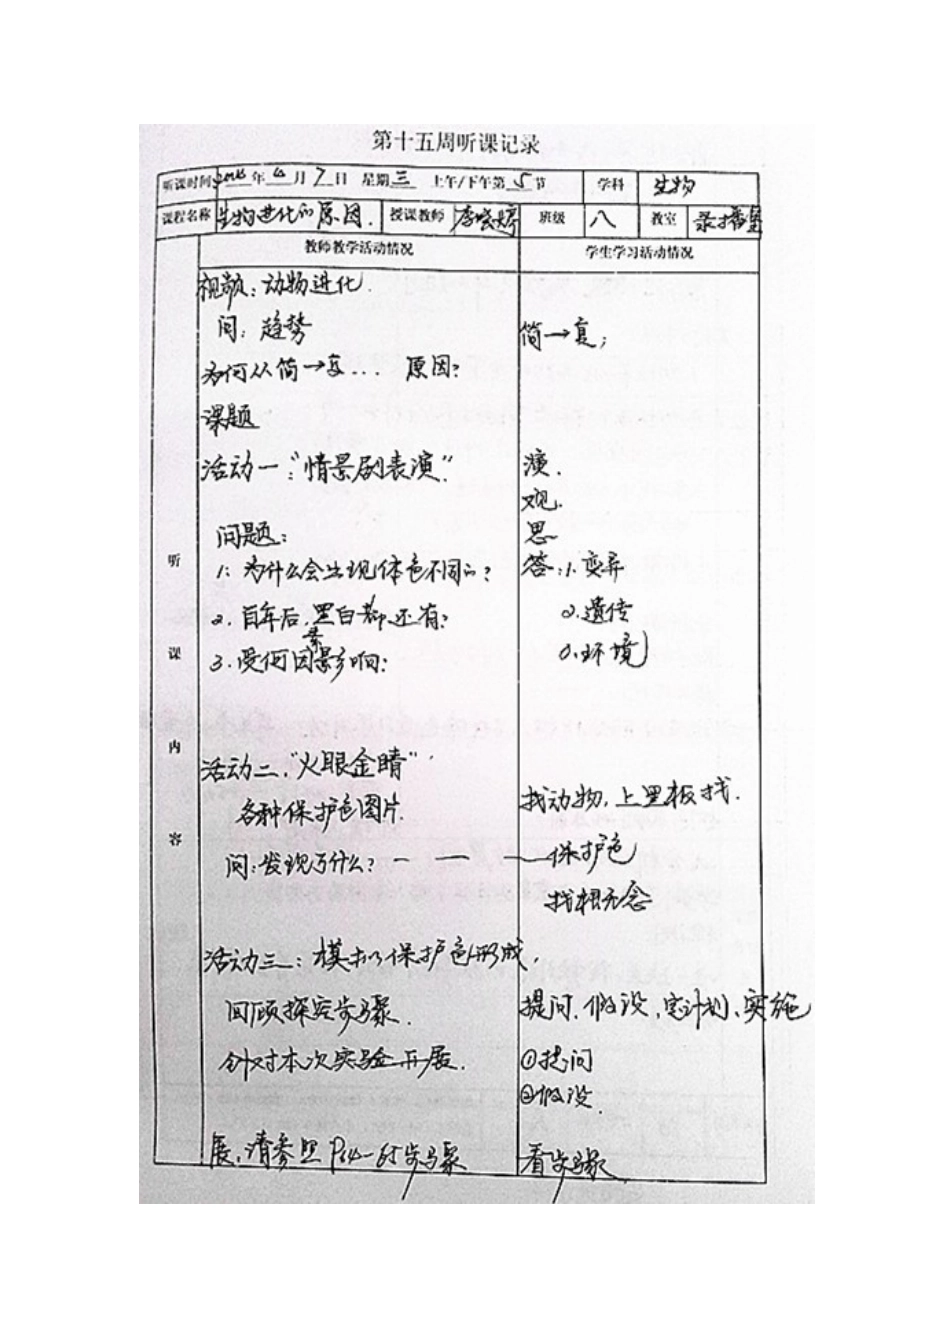 第十五周听课记录
听课时间 年 月 7 日 星期 三 上午/下午第 5 节 学科 生物
课程名称 生物进化的原因. 授课教师 李 婷 班级 八 教室 录播室
教师教学活动情况 学生学习活动情况
听课内容
视频:动物进化.
问:趋势 简→复;
为何从简→复... 原因?
课题
活动一:"情景剧表演". 演.
观.
问题: 思
1. 为什么会出现体色不同的? 答:1.变异
2. 百年后,黑白都还有? 2.遗传
3. 受何因素影响: 环境
活动二."火眼金睛".
各种保护色图片. 找动物,上黑板找.
问:发现了什么? — — — 保护色
找概念
活动三:模拟保护色形成,
回顾探究步骤. 提问.假设,定计划、实施
针对本次实验开展. ①提问
②假设.
展,请参照P64-65步骤 看步骤